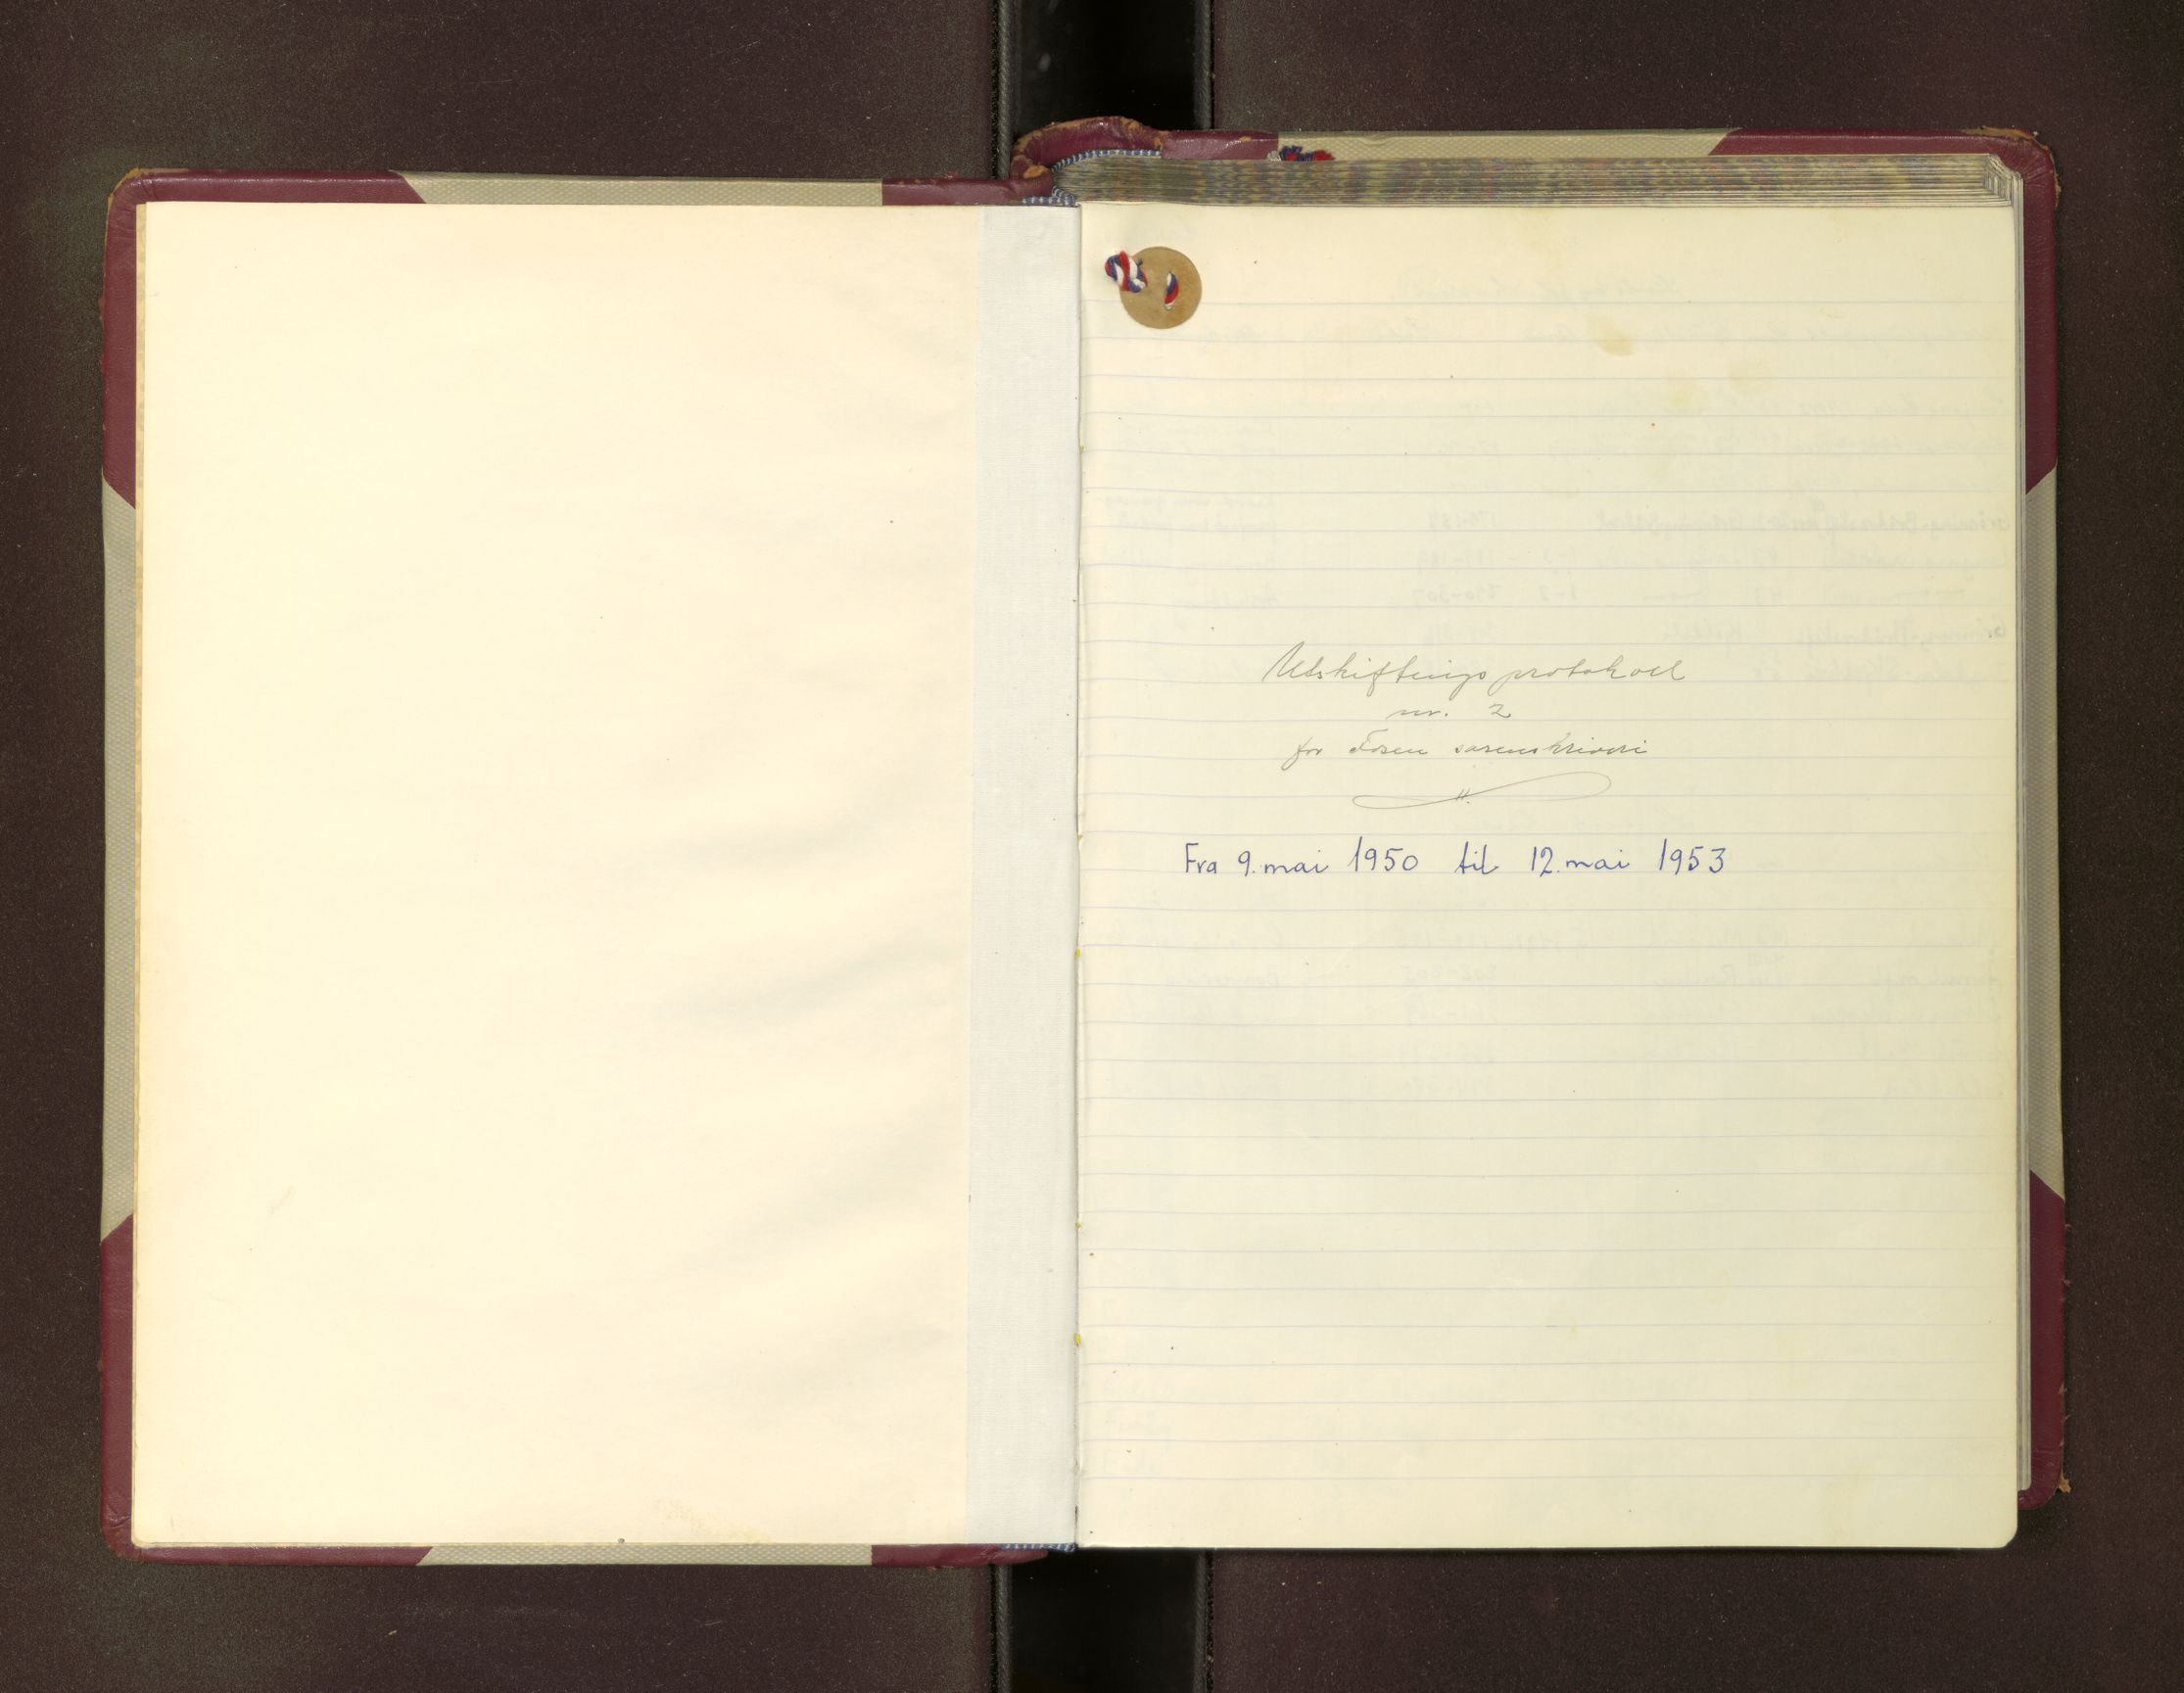 Utskiftingsprotokoll
nr. 2
for Fosen sorenskriveri
Fra 9. mai 1950 til 12. mai 1953